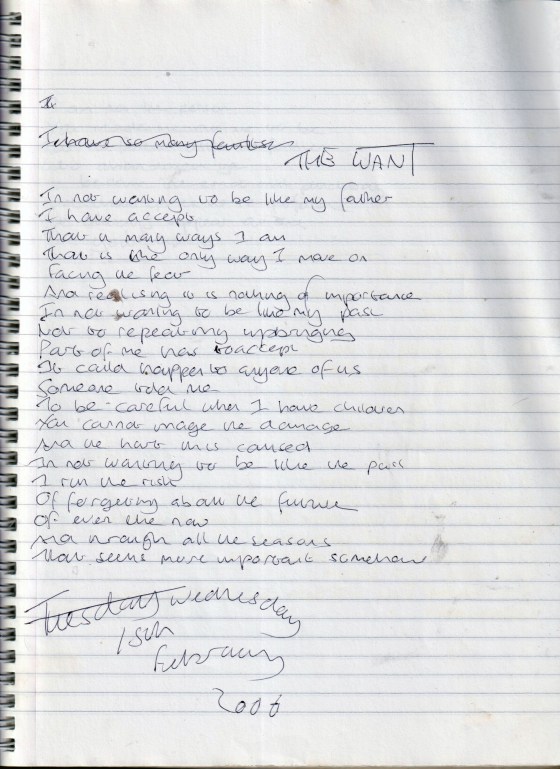 THE WANT
In not wanting to be like my father
I have accept
That in many ways I am
That is the only way I move on
Facing the fear
And realising it is nothing of importance
In not wanting to be like my past
Not to repeat my upbringing
Part of me has to accept
It could happen to anyone of us
Someone told me
To be careful when I have children
You cannot the damage
And the hurt this caused
In not wanting to be like the past
I run the risk
Of forgetting about the future
Of even the now
And through all the seasons
That seems more important somehow
Tuesday Wednesday
15th
February
2006